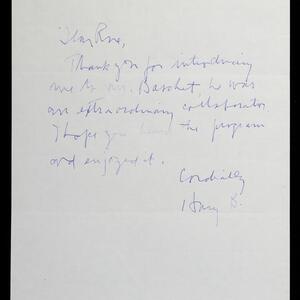 Dear Rose,
Thank you for introducing
me to Mr. Baschet, he was
an extraordinary collaborator
I hope you heard the program
and enjoyed it.
Cordially